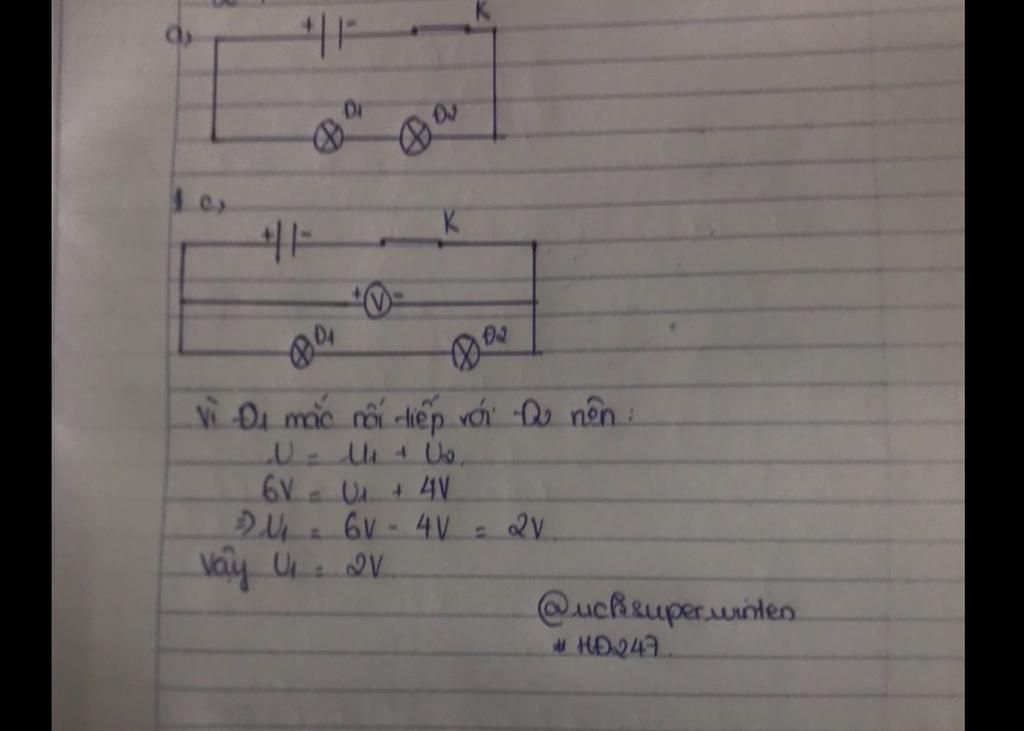 a,
+ - K
Đ1 Đ2
1 c,
+ - K
+ V -
Đ1 Đ2
Vì Đ1 mắc nối tiếp với Đ2 nên:
U = U1 + U2.
6V = U1 + 4V
=> U1 = 6V - 4V = 2V
Vậy U1 = 2V
# HĐ247.